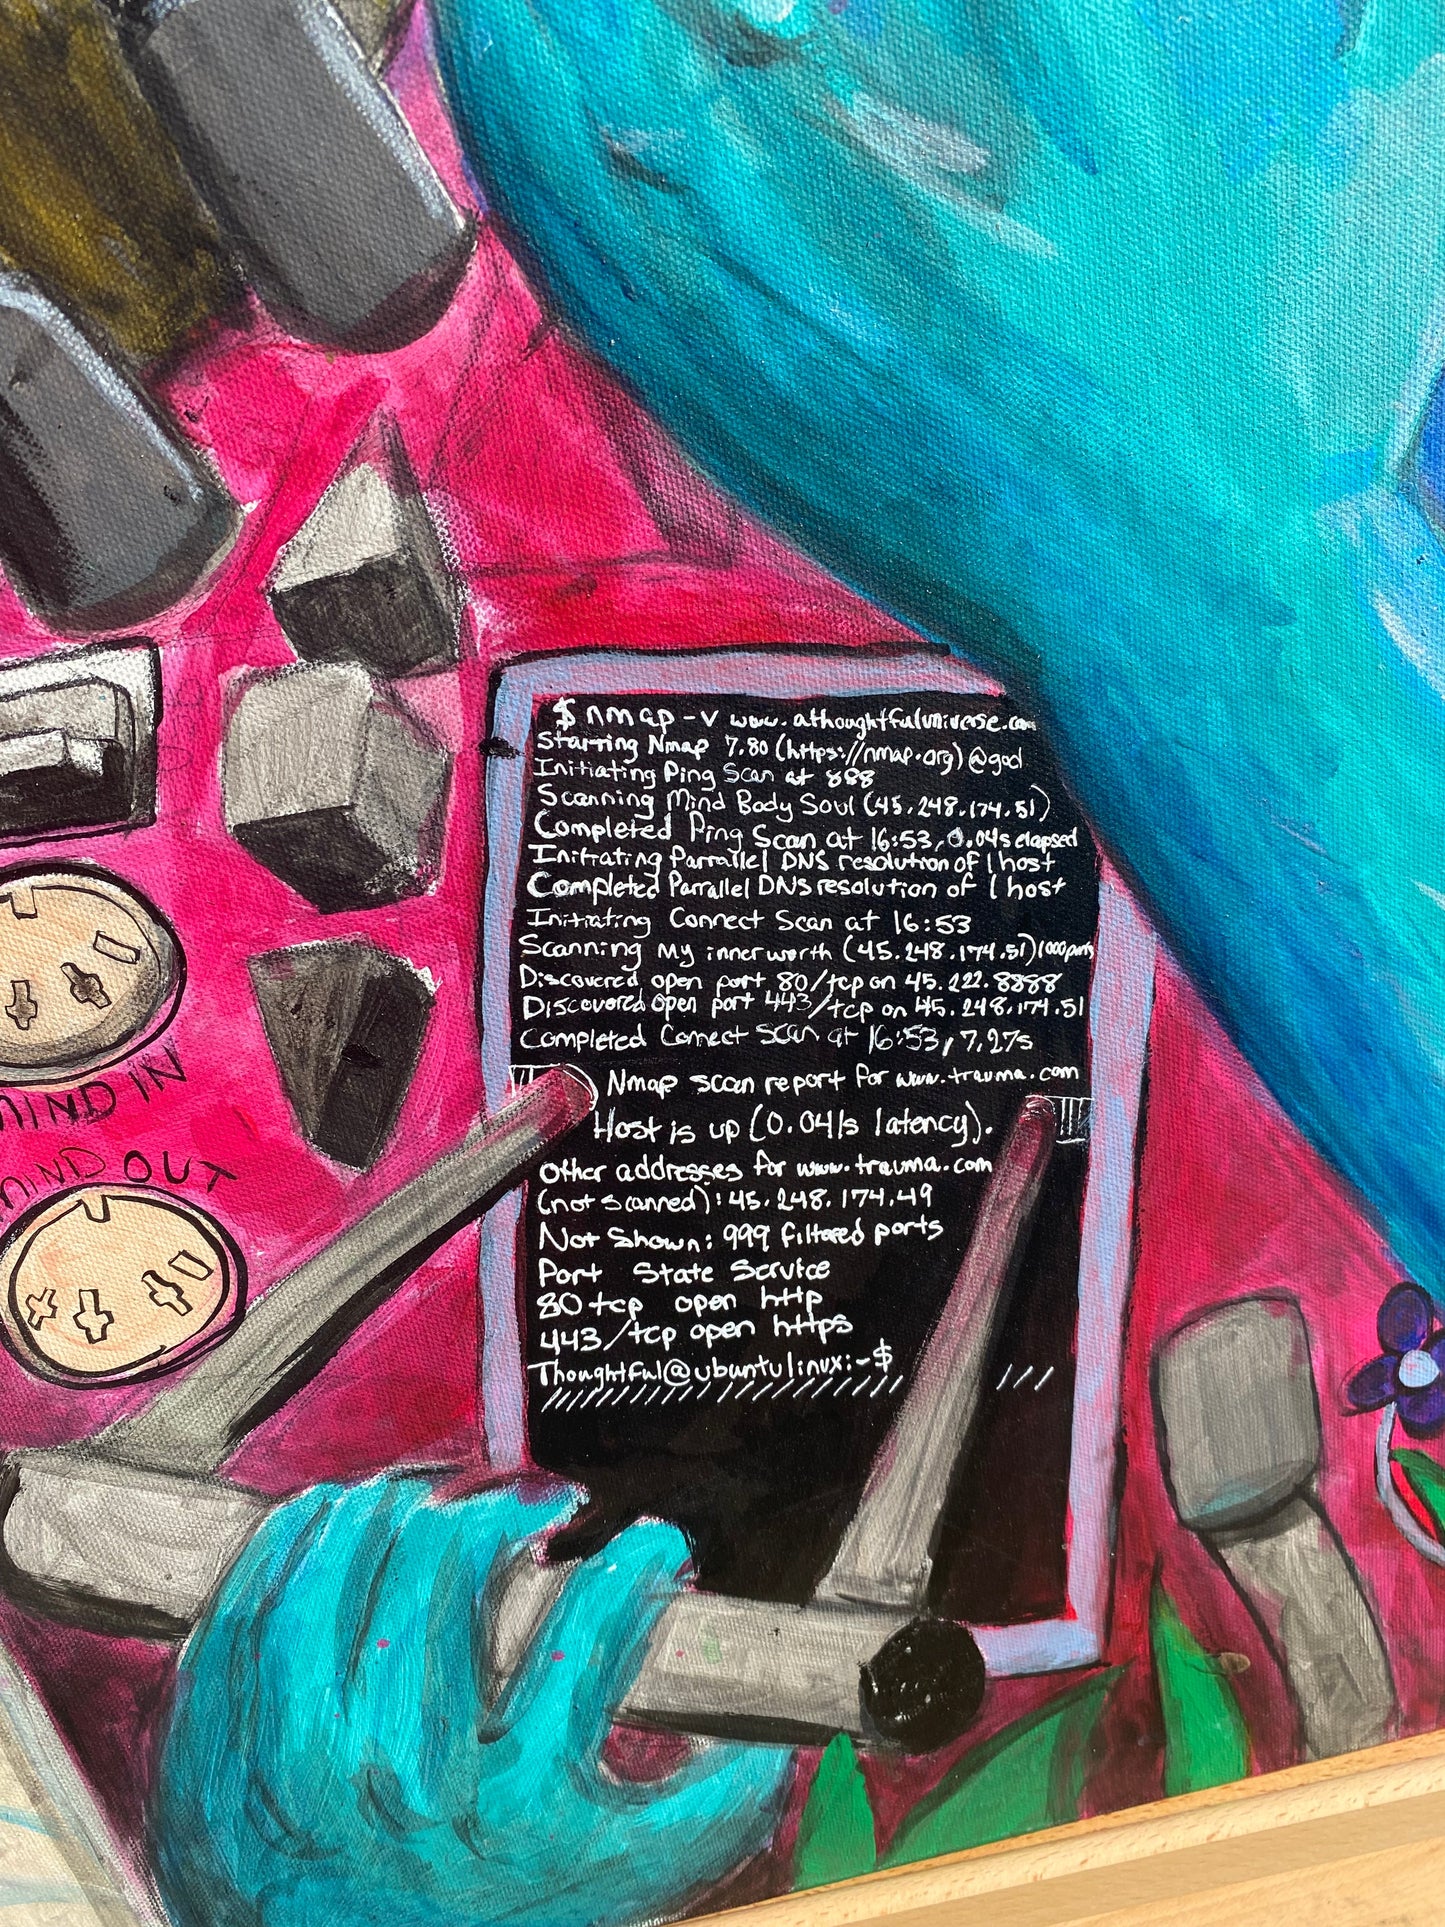 $ nmap -v www.athoughtfuluniverse.com
Starting Nmap 7.80 (https://nmap.org) @god
Initiating Ping Scan at 888
Scanning Mind Body Soul (45.248.174.51)
Completed Ping Scan at 16:53, 0.04s elapsed
Initiating Parrallel DNS resolution of 1 host
Completed Parrallel DNS resolution of 1 host
Initiating Connect Scan at 16:53
Scanning My inner worth (45.248.174.51) 1000 ports
Discovered open port 80/tcp on 45.222.8888
Discovered open port 443/tcp on 45.248.174.51
Completed Connect Scan at 16:53, 7.27s
Nmap scan report for www.trauma.com
Host is up (0.041s latency).
Other addresses for www.trauma.com
(not scanned): 45.248.174.49
Not Shown: 999 filtered ports
Port State Service
80 tcp open http
443/tcp open https
Thoughtful@ubuntulinux:~$
MIND IN
MIND OUT